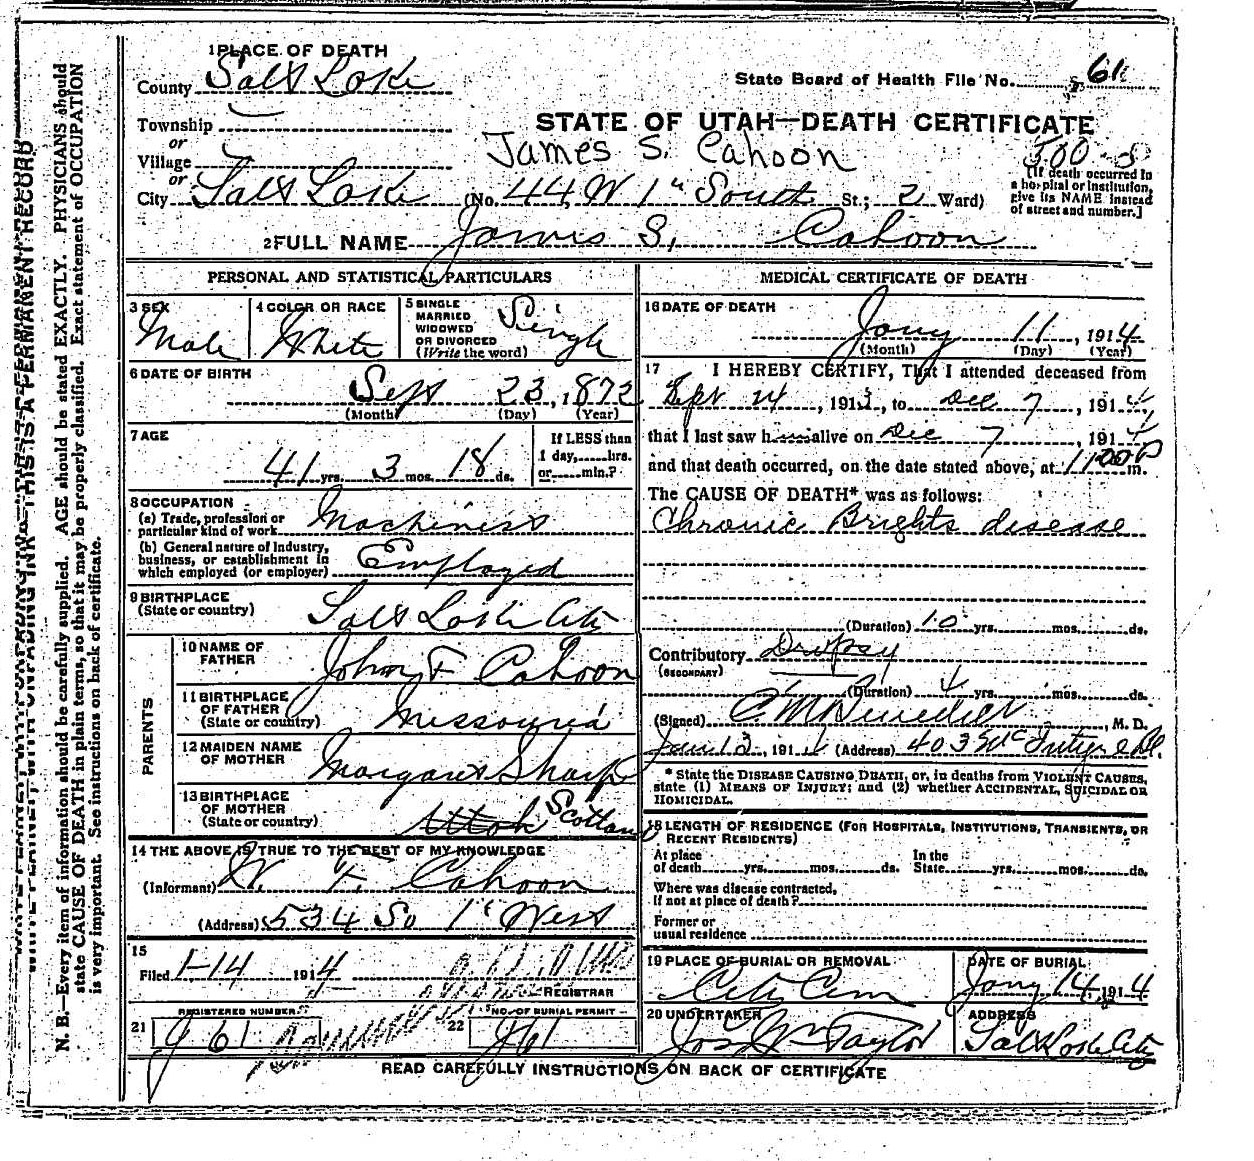 1 PLACE OF DEATH
County Salt Lake
State Board of Health File No. 61
Township
or
Village
or
City Salt Lake (No. 44 W 1st South St.; 2 Ward)
STATE OF UTAH—DEATH CERTIFICATE
James S. Cahoon
[If death occurred in a hospital or institution, give its NAME instead of street and number.]
2 FULL NAME James S. Cahoon
PERSONAL AND STATISTICAL PARTICULARS
3 SEX Male
4 COLOR OR RACE White
5 SINGLE MARRIED WIDOWED OR DIVORCED (Write the word) Single
6 DATE OF BIRTH Sept 23, 1872
(Month) (Day) (Year)
7 AGE 41 yrs. 3 mos. 18 ds.
If LESS than 1 day, hrs. or min.?
8 OCCUPATION
(a) Trade, profession or particular kind of work Machinist
(b) General nature of Industry, business, or establishment in which employed (or employer) Employed
9 BIRTHPLACE (State or country) Salt Lake City
PARENTS
10 NAME OF FATHER John F Cahoon
11 BIRTHPLACE OF FATHER (State or country) Missouri
12 MAIDEN NAME OF MOTHER Margaret Sharp
13 BIRTHPLACE OF MOTHER (State or country) Scotland
14 THE ABOVE IS TRUE TO THE BEST OF MY KNOWLEDGE
(Informant) W. F. Cahoon
(Address) 534 So 1st West
15
Filed 1-14 1914
REGISTRAR
REGISTERED NUMBER
21 J 61
22 NO. OF BURIAL PERMIT
J61
MEDICAL CERTIFICATE OF DEATH
16 DATE OF DEATH
Jany 11, 1914
(Month) (Day) (Year)
17 I HEREBY CERTIFY, That I attended deceased from
Sept 24, 1913, to Dec 7, 191
that I last saw h alive on Dec 7, 191
and that death occurred, on the date stated above, at 1100P m.
The CAUSE OF DEATH* was as follows:
Chronic Brights disease
(Duration) 10 yrs. mos. ds.
Contributory (SECONDARY) Dropsy
(Duration) 4 yrs. mos. ds.
(Signed) C M Benedict, M. D.
Jan 13, 1914 (Address) 403 McIntyre Bl.
* State the DISEASE CAUSING DEATH, or, in deaths from VIOLENT CAUSES, state (1) MEANS OF INJURY; and (2) whether ACCIDENTAL, SUICIDAL OR HOMICIDAL.
18 LENGTH OF RESIDENCE (FOR HOSPITALS, INSTITUTIONS, TRANSIENTS, OR RECENT RESIDENTS)
At place of death yrs. mos. ds. In the State yrs. mos. ds.
Where was disease contracted, if not at place of death?
Former or usual residence
19 PLACE OF BURIAL OR REMOVAL City Cem
DATE OF BURIAL Jany 14, 1914
20 UNDERTAKER Jos Wm Taylor
ADDRESS Salt Lake City
READ CAREFULLY INSTRUCTIONS ON BACK OF CERTIFICATE
WRITE PLAINLY WITH UNFADING INK—THIS IS A PERMANENT RECORD
N. B.—Every item of information should be carefully supplied. AGE should be stated EXACTLY. PHYSICIANS should
state CAUSE OF DEATH in plain terms, so that it may be properly classified. Exact statement of OCCUPATION
is very important. See instructions on back of certificate.